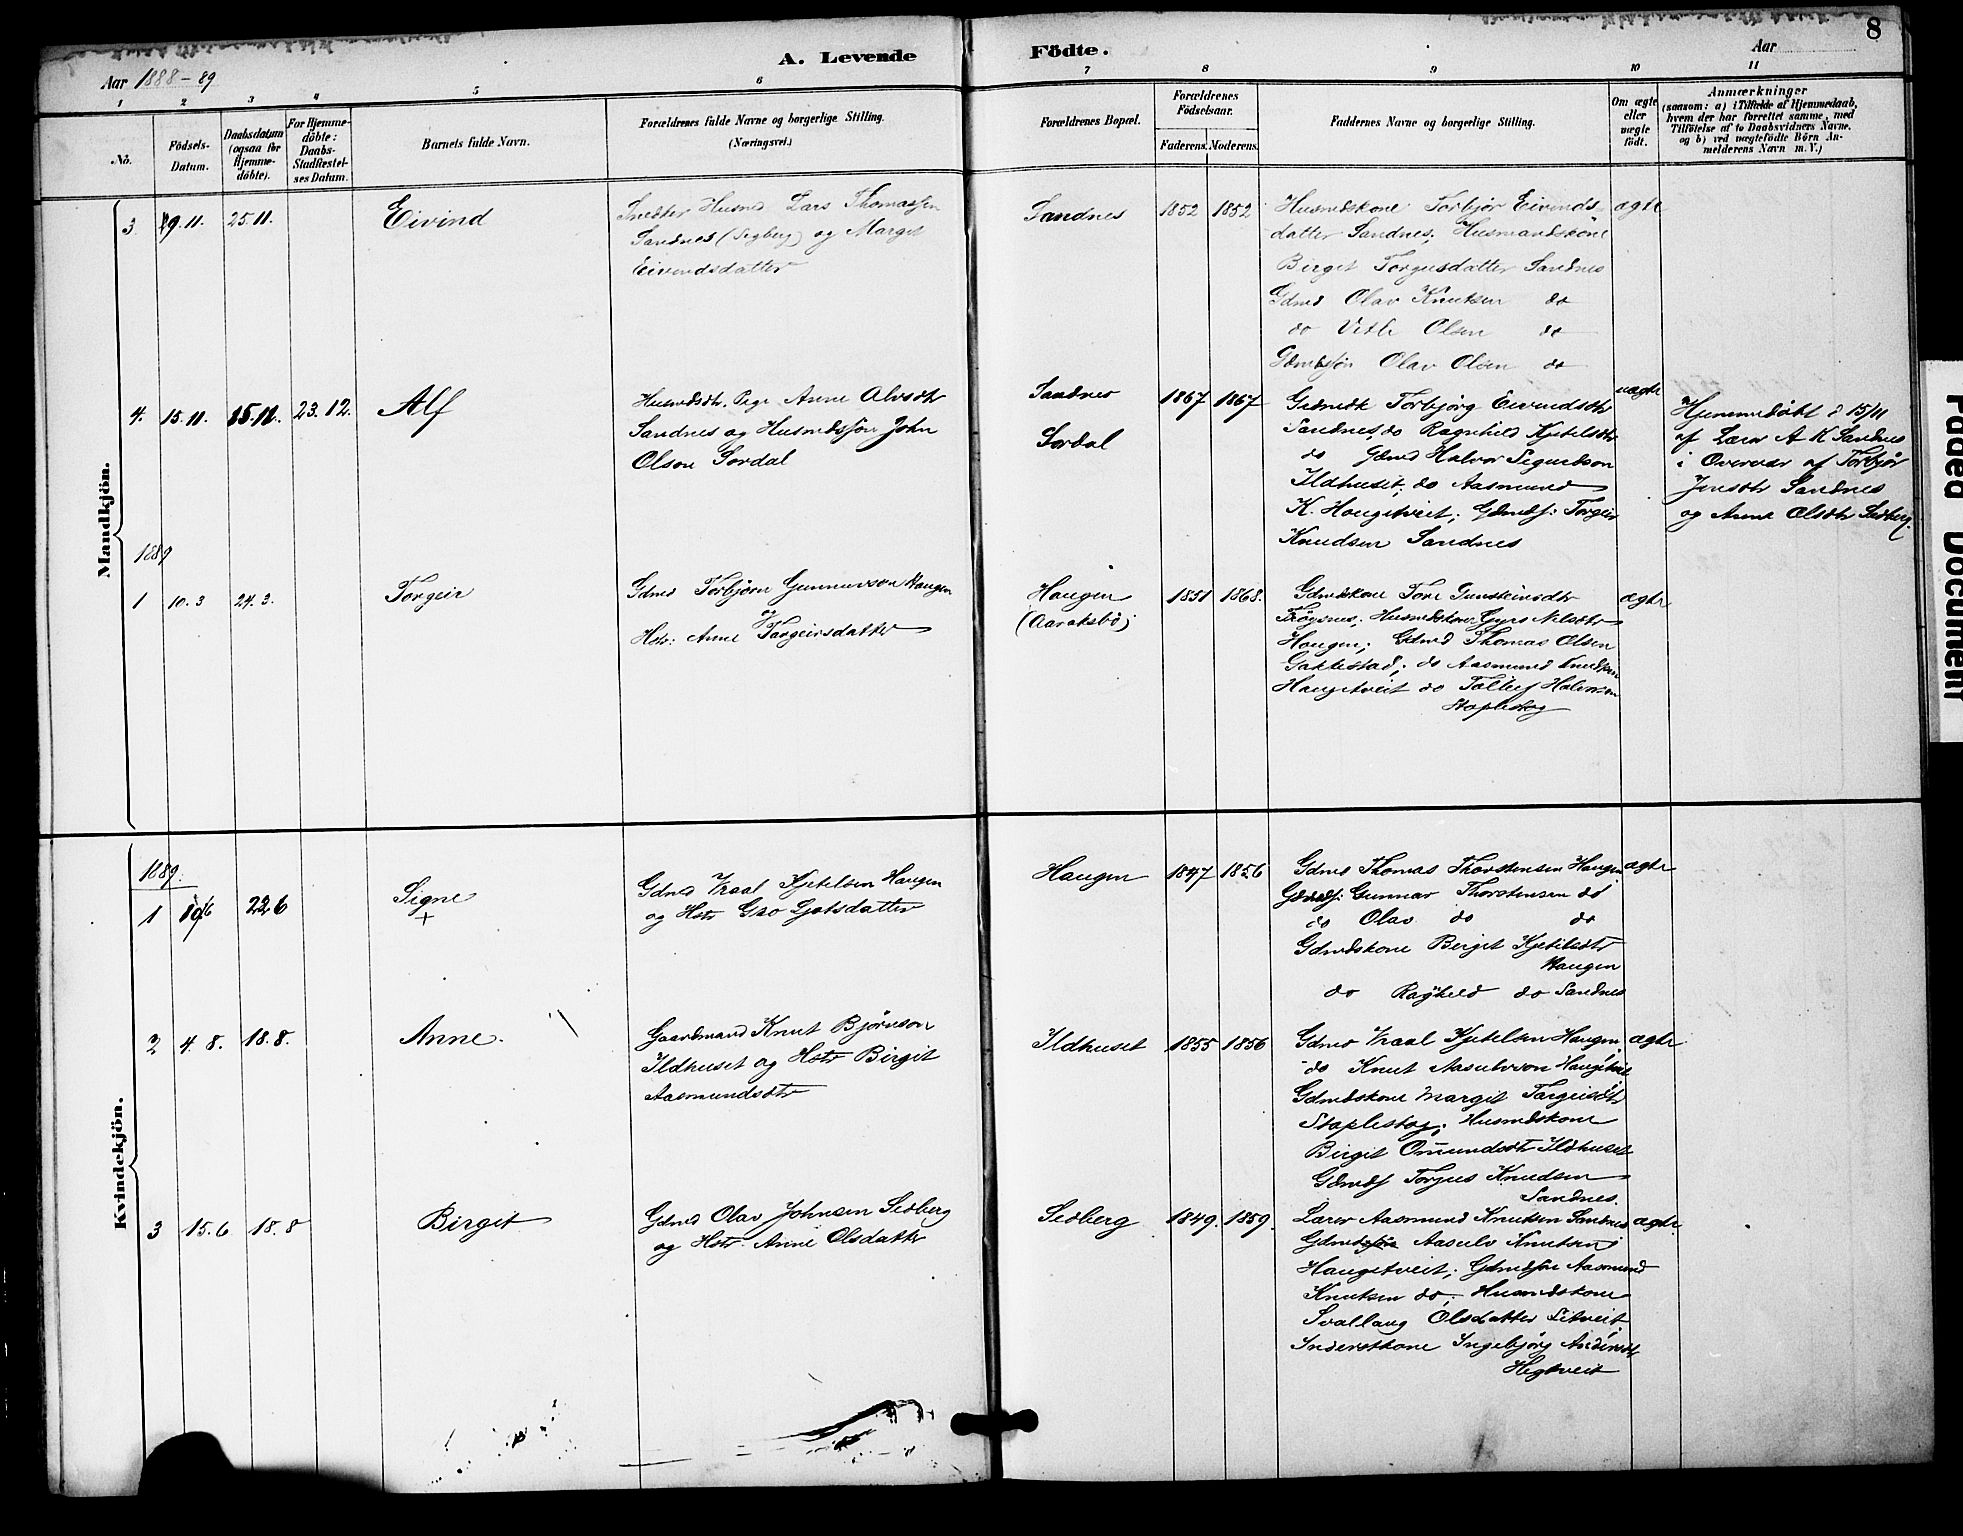 8
A. Levende Födte.
Aar 1888-89
Aar
1 2 3 4 5 6 7 8 9 10 11
No.
Födsels-Datum.
Daabsdatum (ogsaa for Hjemme-döbte).
For Hjemme-döbte: Daabs-Stadfæstel-ses Datum.
Barnets fulde Navn.
Forældrenes fulde Navne og borgerlige Stilling.
(Næringsvei.)
Forældrenes Bopæl.
Forældrenes Födselsaar.
Faderens. Moderens.
Faddernes Navne og borgerlige Stilling.
Om ægte eller uægte födt.
Anmærkninger
(saasom: a) i Tilfælde af Hjemmedaab,
hvem der har forrettet samme, med
Tilföielse af to Daabsvidners Navne,
og b) ved uægtefödte Börn An-
melderens Navn m. V.)
Mandkjön.
3 9.11. 25.11. Eivind
Husmd Lars Thomassen
Sandnes og Marget
Eivindsdatter
Sandnes 1852 1852
Husmdskone Torbjør Eivinds-
datter Sandnes; Husmandskone
Birget Torgusdatter Sandnes
Gdmd Olav Knutsen do
do Vetle Olsen do
Gdmdssøn Olav Olsen do
ægte
4. 15.11. 15.11. 23.12. Alf
Husmdsdtr. Pige Anne Alvsdtr
Sandnes og Husmdssøn John
Olson Sordal
Sandnes
Sordal
1867 1867
Torbjørg Eivindsdtr
Sandnes, do Ragnhild Kjetelsdtr
do Gdmd Halvor Sigurdson
Ildhuset; do Aasmund
K. Haugetveit; Gdmds: Torgeir
Knudsen Sandnes
uægte
Hjemmedøbt d 15/11
af Lærer A K Sandnes
i Overvær af Torbjør
Jensdtr Sandnes
og Anne Olsdtr Sedberg.
1889
1 10.3 24.3. Torgeir
Gdmd Torbjørn Gunnarson Haugen
og
Hstr: Anne Targeirsdatter
Haugen
(Aaraksbø)
1851 1868.
Gdmdskone Tore Gunsteinsdtr
Frøysnes; Husmdskone Gyro Nilsdtr
Haugen; Gdmd Thomas Olsen
Gakkestad; do Aasmund Knudsen
Haugetveit do Tallef Halvorson
Stapleskog
ægte
Kvindekjön.
1889.
1 10/6 22 6 Signe
+
Gdmd Vraal Kjetelsen Haugen
og Hstr Gro Gjutsdatter
Haugen 1847 1856
Gdmd Thomas Thorstensen Haugen
Gdmds: Gunnar Thorstensen do
do Olav do do
Gdmdskone Birget Kjetilsdtr
Haugen
do Ragnhild do Sandnes
ægte
2 4. 8. 18.8. Anne.
Gaardmand Knut Bjørnson
Ildhuset og Hstr Birgit
Aasmundsdtr
Ildhuset 1855 1856
Gdmd Vraal Kjetelsen Haugen,
do Knut Aasulvson Haugetveit
Gdmdskone Margit Targeisdtr
Stapleskog; Husmdskone
Birgit Omundsdtr Ildhuset
Gdmds Torjus Knudsen
Sandnes.
ægte
3 15.6 18.8 Birgit
Gdmd Olav Johnsen Sedberg
og Hstr. Anne Olsdatter
Sedberg 1849. 1859.
Lærer Aasmund Knutsen Sandnes
Gdmd Aasulv Knutsen
Haugetveit; Gdmdssøn Aasmund
Knutsen do; Husmdskone
Svallaug Olsdatter
Inderstkone Ingebjørg
Hegtveit
ægte
Faded Document